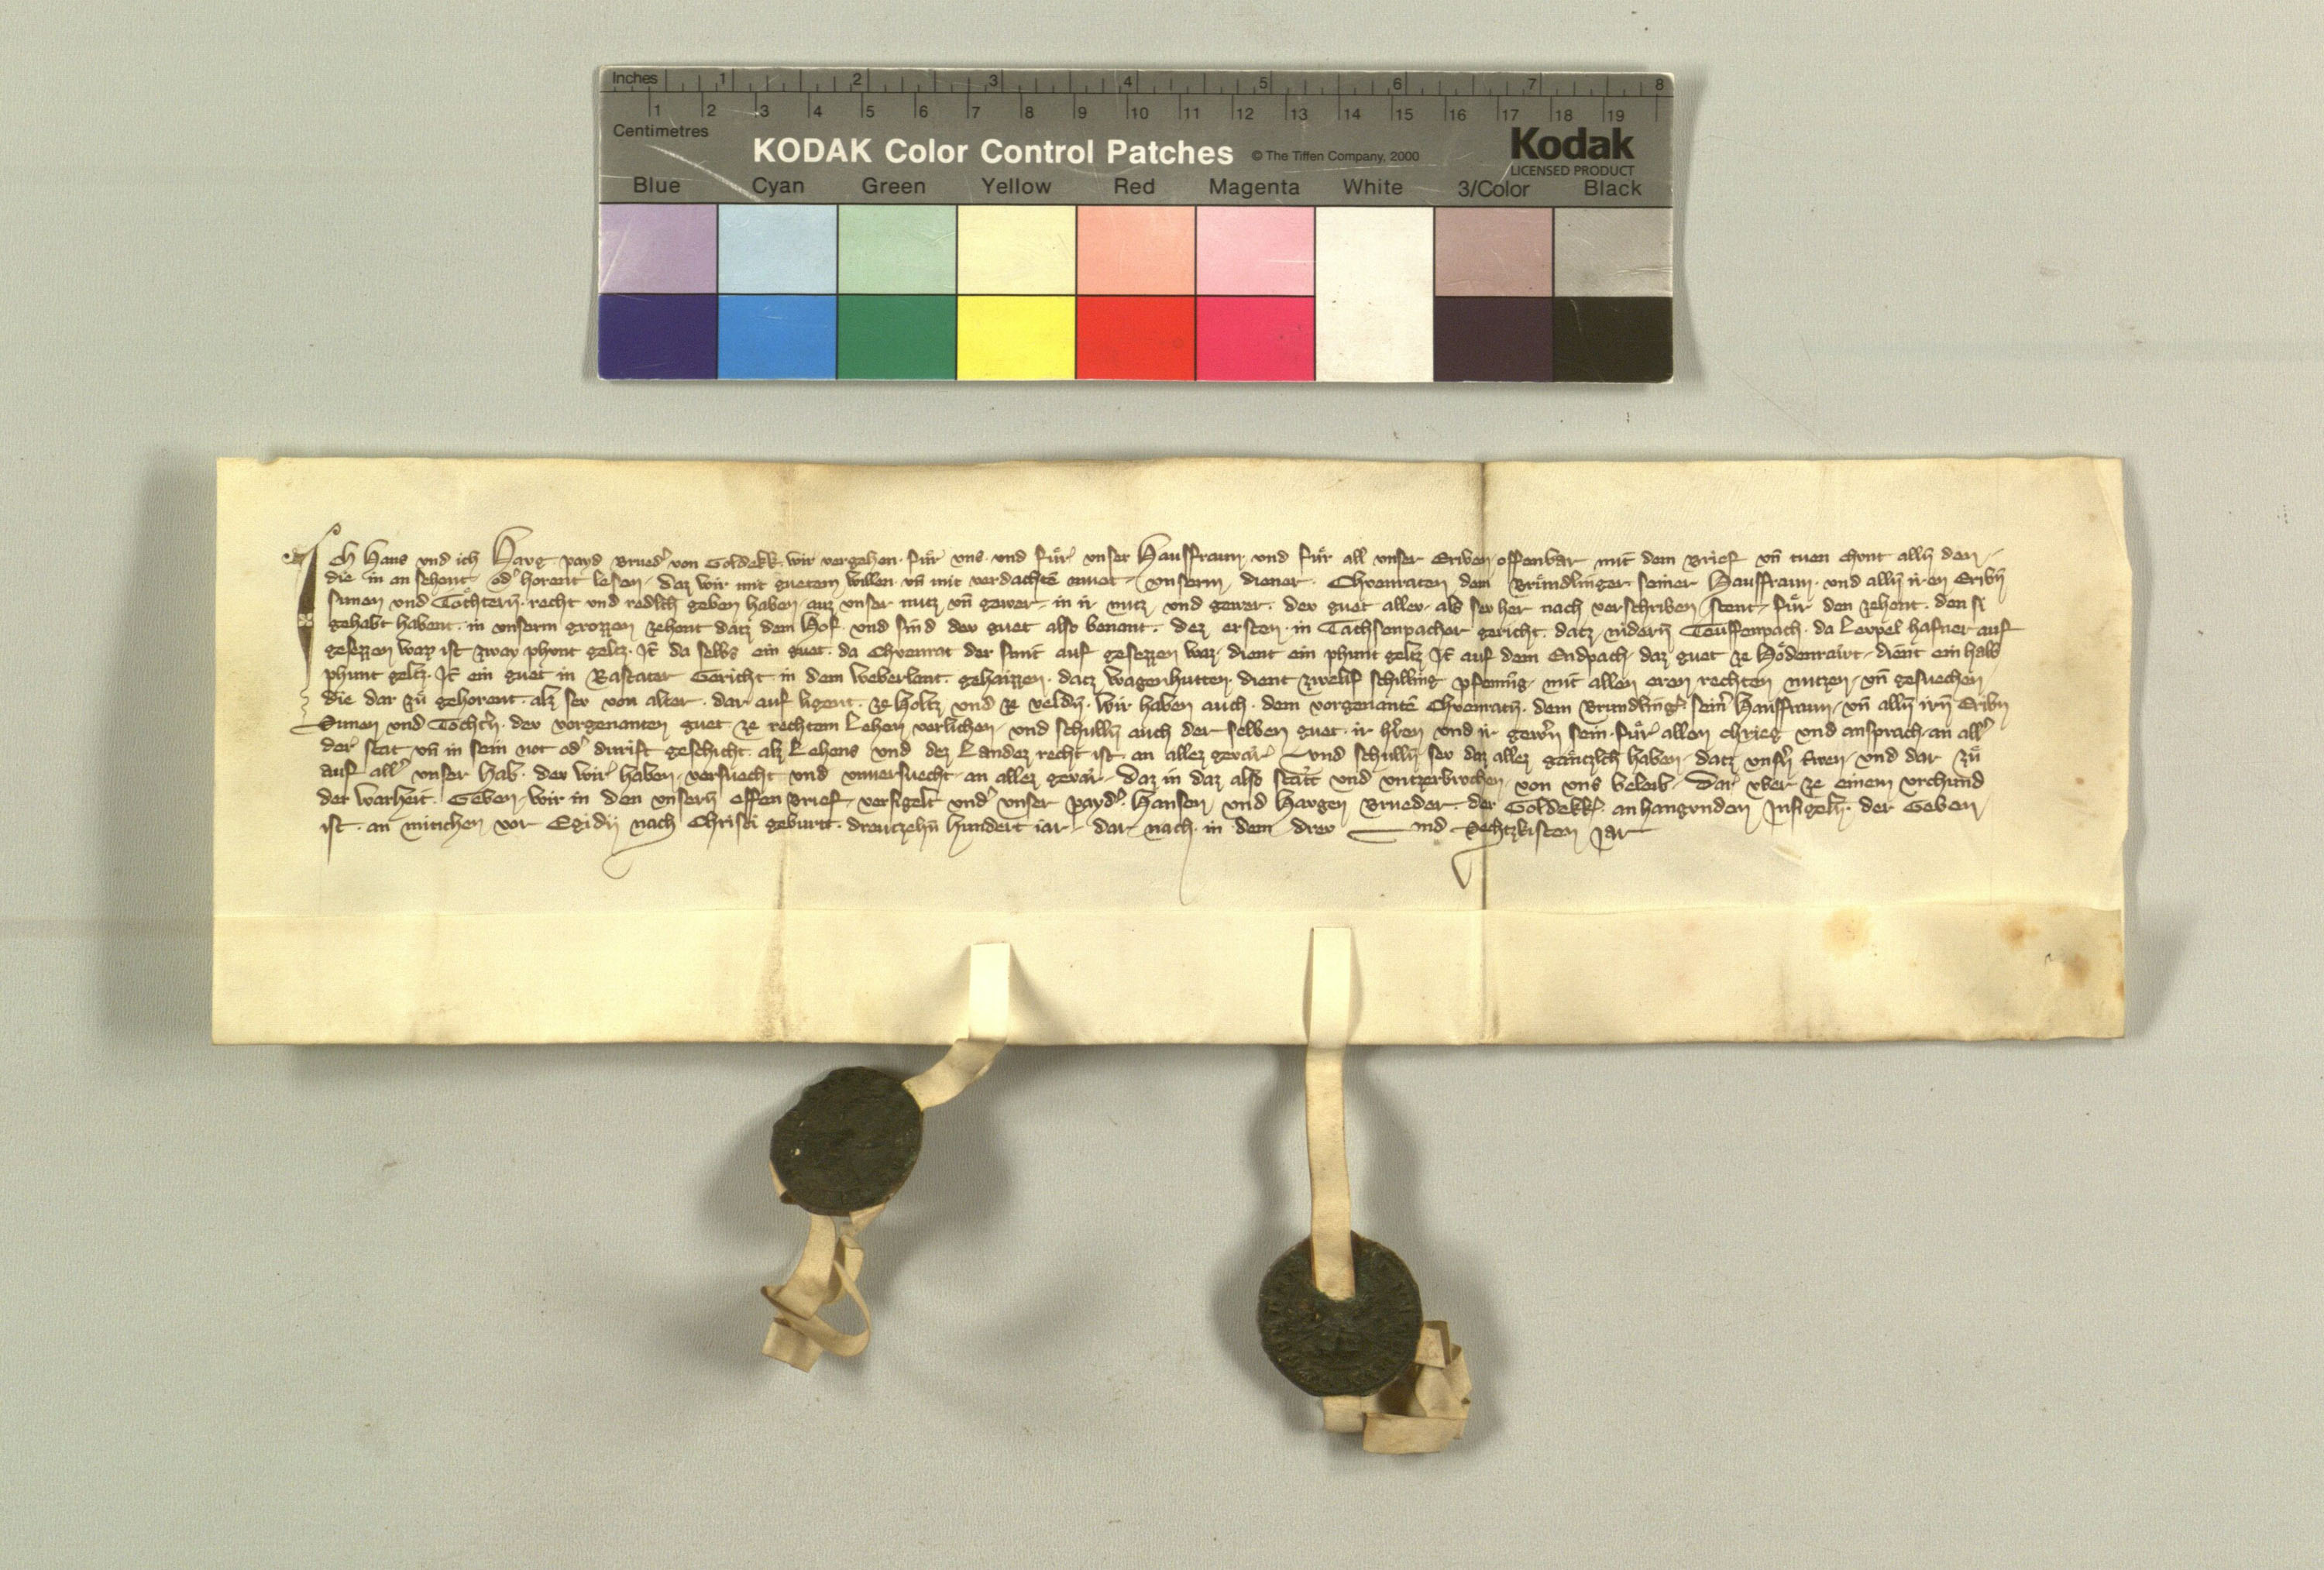 Inches 1 2 3 4 5 6 7 8
1 2 3 4 5 6 7 8 9 10 11 12 13 14 15 16 17 18 19
Centimetres
KODAK Color Control Patches © The Tiffen Company, 2000 Kodak
LICENSED PRODUCT
Blue Cyan Green Yellow Red Magenta White 3/Color Black
Ich Hans vnd ich Havg payd Brued von Goldekk wir vergehen fuͤr vns vnd fuͤr vnser Hausfrawn vnd fuͤr all vnser Eriben offenbar mit dem Brief vn̄ tuen chunt alln̄ den
die in an sehent od horent lesen daz wir mit guetem willen vn̄ mit verdachtē muet vnserm diener Chvenraten dem Bruͤndlinger seiner Hausfrawn vnd alln̄ iren Eribn̄
sunen vnd Toͤchtern̄ recht vnd redlich geben haben auz vnser nutz vn̄ gewer in ir nutz vnd gewer dev guet allev als sev her nach verschriben stent fuͤr den zehent den si
gehabt habent in vnserm grozzen zehent datz dem Hof vnd sind dev guet also benant dez ersten in Tachsenpacher gericht datz nidern̄ Teuffenpach da Levpel hafner auf
gesezzen waz ist zway phunt geltz It̄ da selbs ein guet da Chvenrat der smit auf gesezzen waz dient ein phunt geltz It̄ auf dem Endpach daz guet ze Hoͤdenraͤwt dient ein halb
phunt geltz It̄ ein guet in Rastater Gericht in dem Weberlent gehaizzen datz Wagenhutten dient zwelif schilling pfenning mit allen eren rechten nutzen vn̄ gesuechen
die dar zuͤ gehorent alz sev von alter dar auf ligent ze Holtz vnd ze veldn̄ Wir haben auch dem vorgenantē Chvenratn̄ dem Brundling sein̄ Hausfrawn vn̄ alln̄ irn̄ Eribn̄
Sunen vnd Tochtn̄ dev vorgenanten guet ze rechtem Lehen verlichen vnd schulln̄ auch der selben guet ir hren vnd ir gewn̄ sein fuͤr allen chrieg vnd ansprach an all
der stat vn̄ in sein not od durift geschicht alz Lehens vnd dez Landez recht ist an allez gevaͤr vnd schulln̄ sev daz allez gaͤntzlich haben datz vnsn̄ trwen vnd dar zuͤ
auf all vnser hab dev wir haben versuecht vnd vnuersuecht an allez gevaͤr Daz in daz also staͤtt vnd vntzerbrochen von vns beleib Dar vber ze einem vrchund
der warheit Geben wir in den vnsern̄ offen Brief versigelt vnd vnser payd Hansen vnd Havgen Brueder der Goldekk anhangvnden Insigeln̄ der Geben
ist an mitichen vor Egidij nach Christi geburtt dreutzehn̄ hundert iar dar nach in dem drev vnd Sechtzkisten Jar